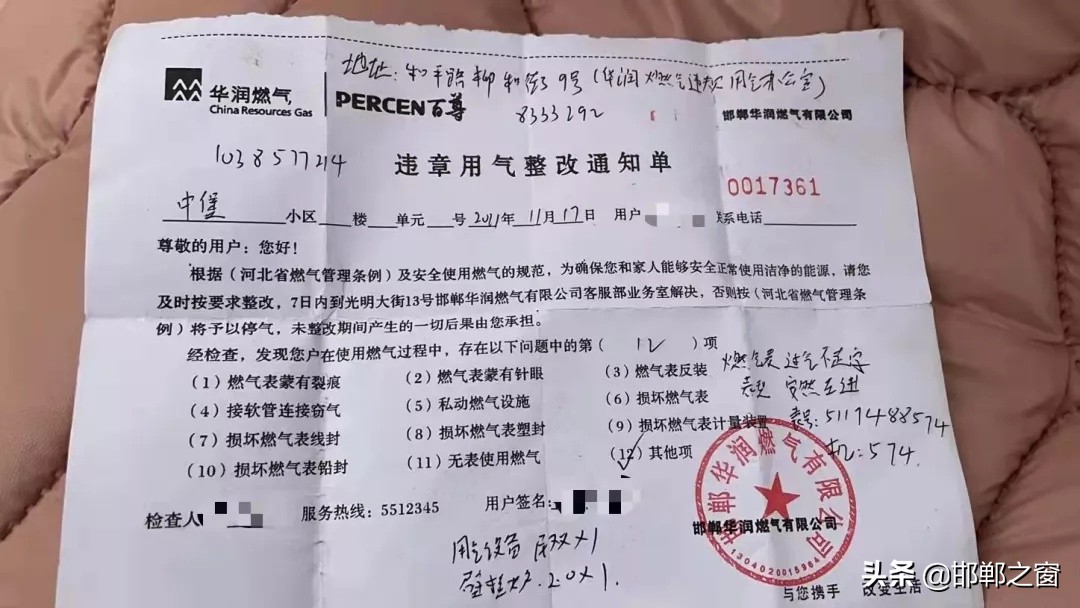 地址：和平路柳林街9号(华润燃气违规用气办公室)
华润燃气
China Resources Gas
PERCEN百尊
8333292
邯郸华润燃气有限公司
1038577214
违章用气整改通知单
0017361
中堡 小区 楼 单元 号 2021年 11月 17日 用户 联系电话
尊敬的用户：您好！
根据（河北省燃气管理条例）及安全使用燃气的规范，为确保您和家人能够安全正常使用洁净的能源，请您
及时按要求整改，7日内到光明大街13号邯郸华润燃气有限公司客服部业务室解决，否则按（河北省燃气管理条
例）将予以停气，未整改期间产生的一切后果由您承担。
经检查，发现您户在使用燃气过程中，存在以下问题中的第（ 12 ）项
（1）燃气表蒙有裂痕 （2）燃气表蒙有针眼 （3）燃气表反装
（4）接软管连接窃气 （5）私动燃气设施 （6）损坏燃气表
（7）损坏燃气表线封 （8）损坏燃气表塑封 （9）损坏燃气表计量装置
（10）损坏燃气表铅封 （11）无表使用燃气 （12）其他项
燃气表过气不走字
突然
表号：5117488574
机：574.
检查人
服务热线：5512345
用户签名：
邯郸华润燃气有限公司
邯郸华润燃气有限公司
1304020015984
用气设备 灶双×1
壁挂炉.20×1.
与您携手 改变生活
头条 @邯郸之窗